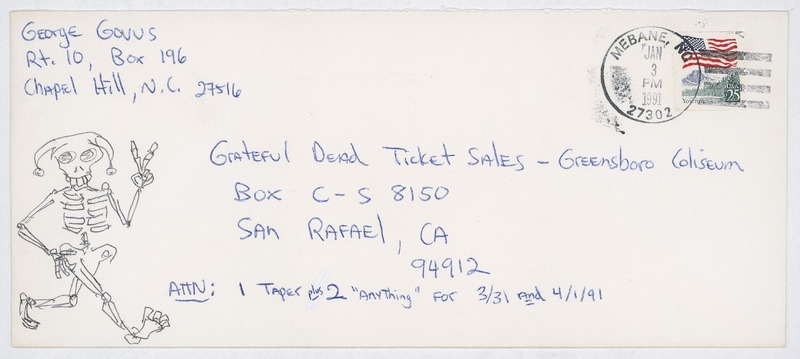 George Govus
Rt. 10, Box 196
Chapel Hill, N.C. 27516
MEBANE, NC
JAN
3
PM
1991
27302
USA
25
Yosemite
Grateful Dead Ticket Sales – Greensboro Coliseum
Box C-S 8150
San Rafael, CA
94912
ATTN: 1 Taper plus 2 "Anything" for 3/31 and 4/1/91